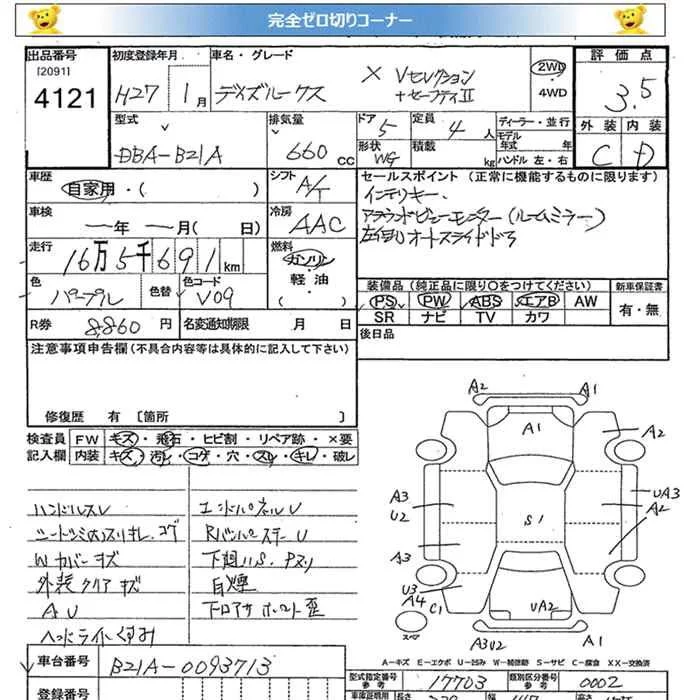 完全ゼロ切りコーナー
出品番号 初度登録年月 車名・グレード 評価点
[2091]
4121 H27 1月 デイズルークス × Vセレクション 2WD 3.5
+セーフティII 4WD
型式 排気量 ドア 定員 ディーラー・並行 外装 内装
DBA-B21A 660cc 5 4人 モデル年式 年 C D
形状 WG 積載 kg ハンドル 左・右
車歴 シフト セールスポイント (正常に機能するものに限ります)
自家用・( ) A/T インテリキー、
車検 冷房 アラウンドビューモニター(ルームミラー)
年 月( 日) AAC 左側オートスライドドア
走行 燃料
16万5千691km ガソリン
軽油
( )
色 色替 色コード 装備品(純正品に限り○をつけてください) 新車保証書
パープル V09 PS PW ABS エアB AW 有・無
SR ナビ TV カワ
R券 8860円 名変通知期限 月 日 後日品
注意事項申告欄(不具合内容等は具体的に記入して下さい)
修復歴 有 [箇所 ]
検査員 FW キズ・飛石・ヒビ割・リペア跡・×要
記入欄 内装 キズ・汚レ・コゲ・穴・スレ・キレ・破レ
ハンドルスレ エンドパネルU
Rバンパーステー U
Wカバーキズ
外装クリアキズ 自煙
AU
ヘッドライトくすみ
A2 A1
A1 A2
A3
U2 UA3
S1 A2
A3
U3
A4 C1 UA2
スペア
A3U2 A1
A-キズ E-エクボ U-凹み W-補修跡 S-サビ C-腐食 XX-交換済
車台番号 B21A-0093713
型式指定番号 参考 17703 類別区分番号 参考 0002
登録番号 車庫証明用 長さ 幅 高さ